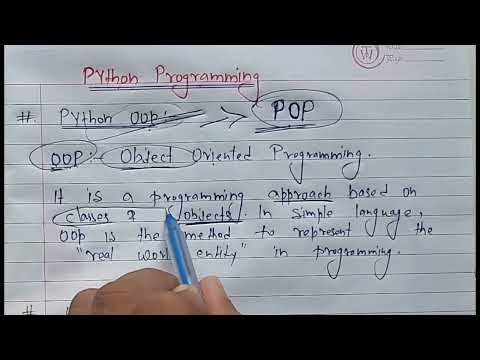 Python Programming
#. Python OOP:- > POP
OOP:- Object Oriented Programming.
It is a programming approach based on
classes & objects. In simple language,
OOP is the method to represent the
"real world entity" in programming.
#